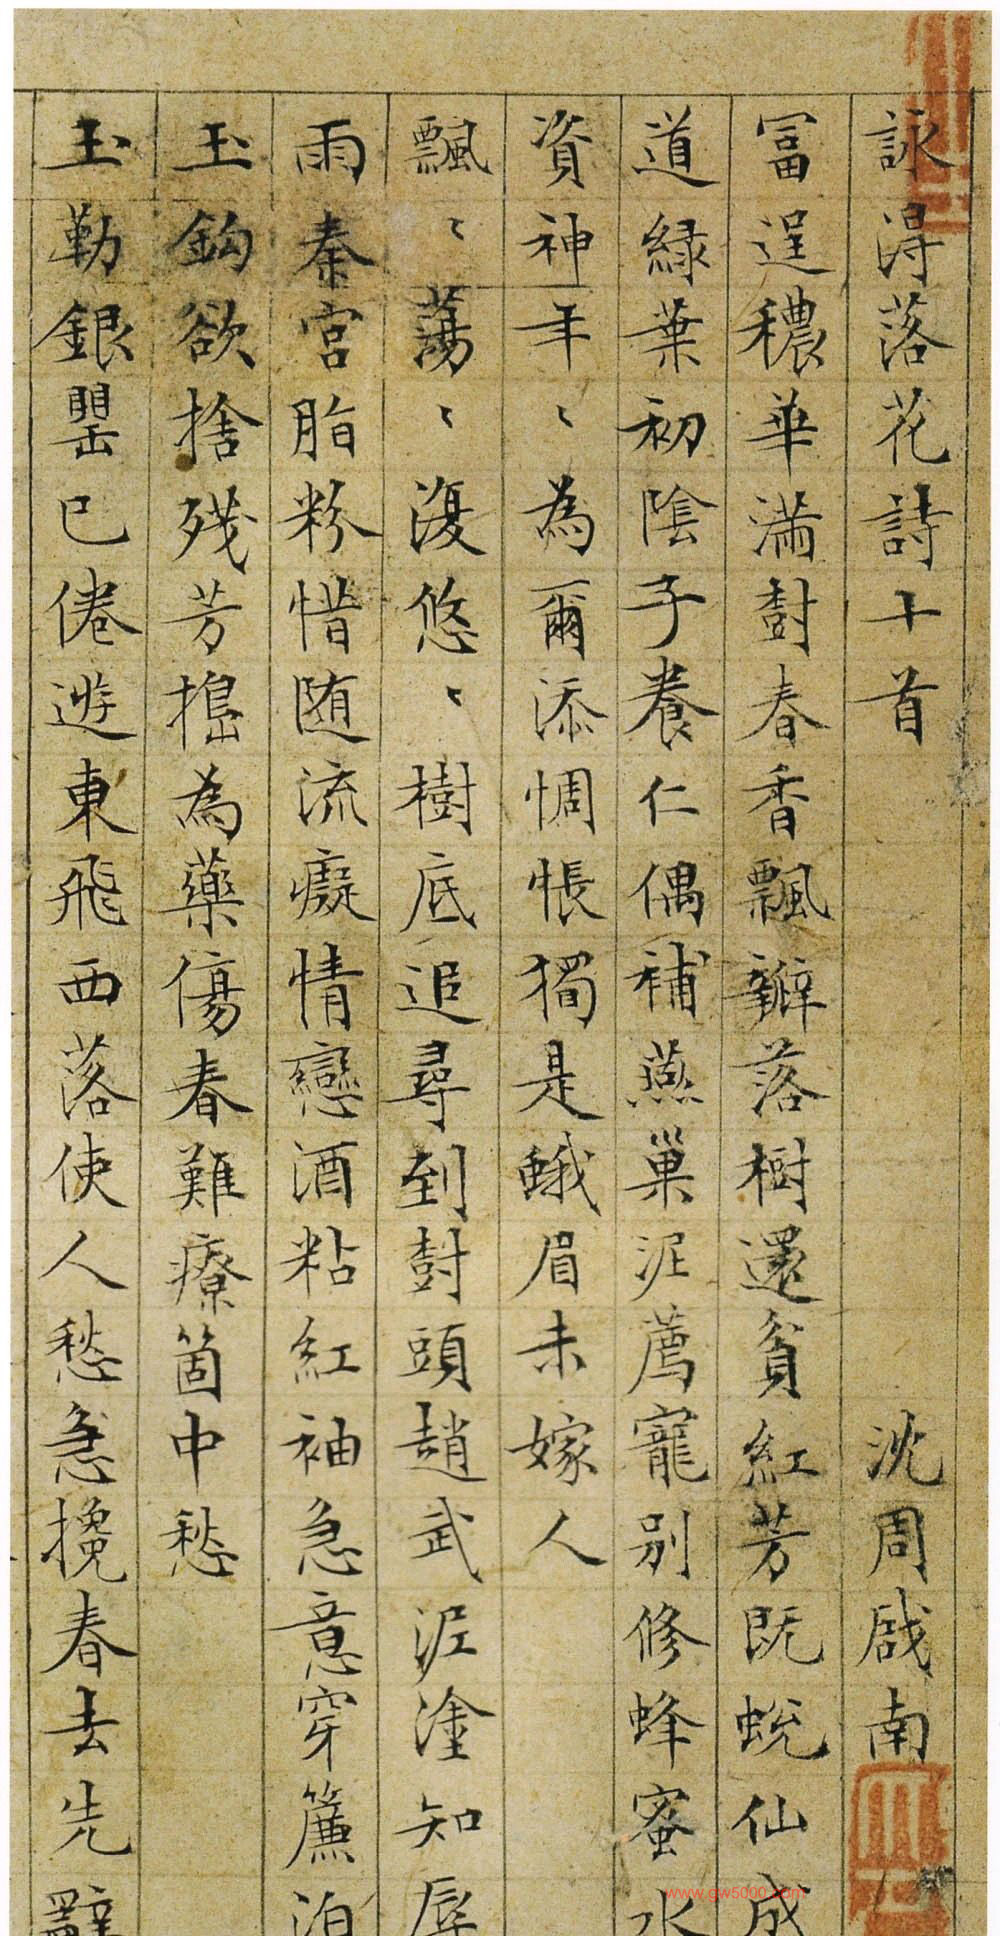 詠得落花詩十首 沈周啟南
富逞穠華滿樹春香飄瓣落樹還貧紅芳既蛻仙成
道綠葉初陰子養仁偶補燕巢泥薦寵別修蜂蜜水
資神年〻為爾添惆悵獨是蛾眉未嫁人
飄〻蕩〻復悠〻樹底追尋到樹頭趙武泥塗知辱
雨秦宮脂粉惜随流癡情戀酒粘紅袖急意穿簾泊
玉鈎欲捨殘芳搗為藥傷春難療箇中愁
玉勒銀罌已倦遊東飛西落使人愁急攙春去先辭
www.gw5000.com